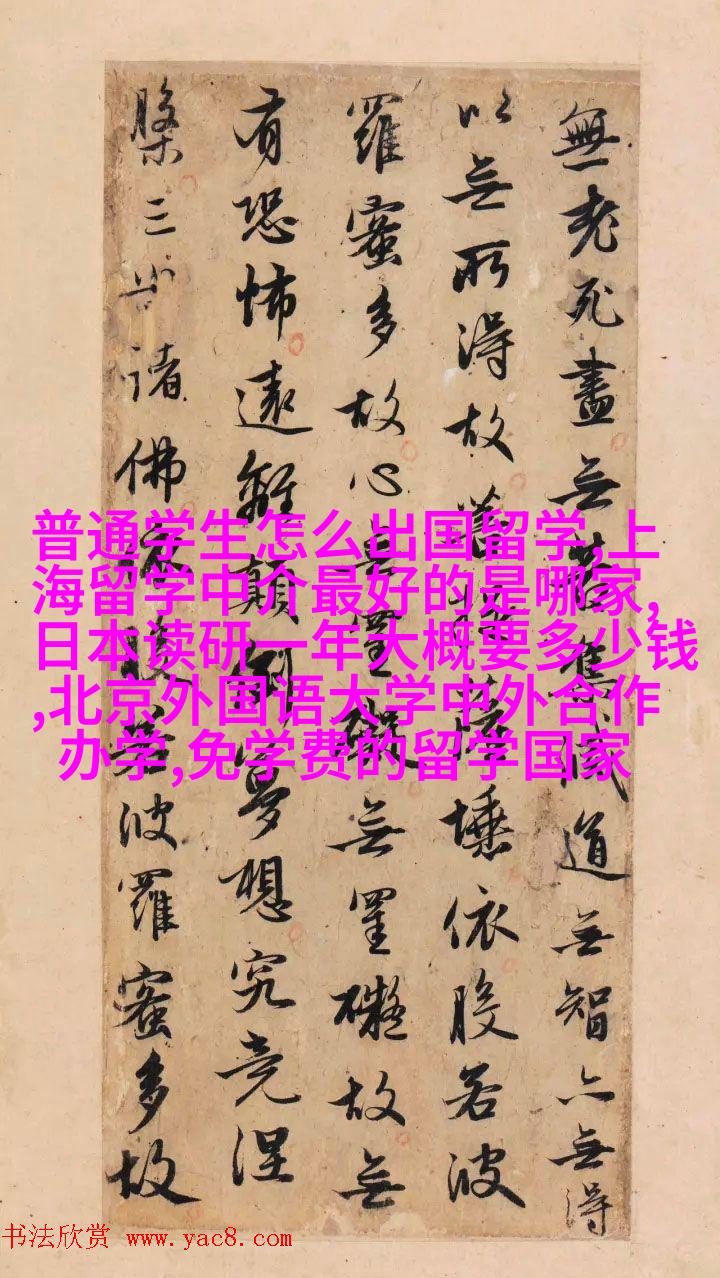 無老死盡无苦集滅道无智亦无得
以无所得故菩提薩埵依般若波
羅蜜多故心無罣礙无罣礙故无
有恐怖遠離顛倒夢想究竟涅
槃三世諸佛依般若波羅蜜多故
普通学生怎么出国留学,上
海留学中介最好的是哪家,
日本读研一年大概要多少钱
,北京外国语大学中外合作
办学,免学费的留学国家
书法欣赏 www.yac8.com